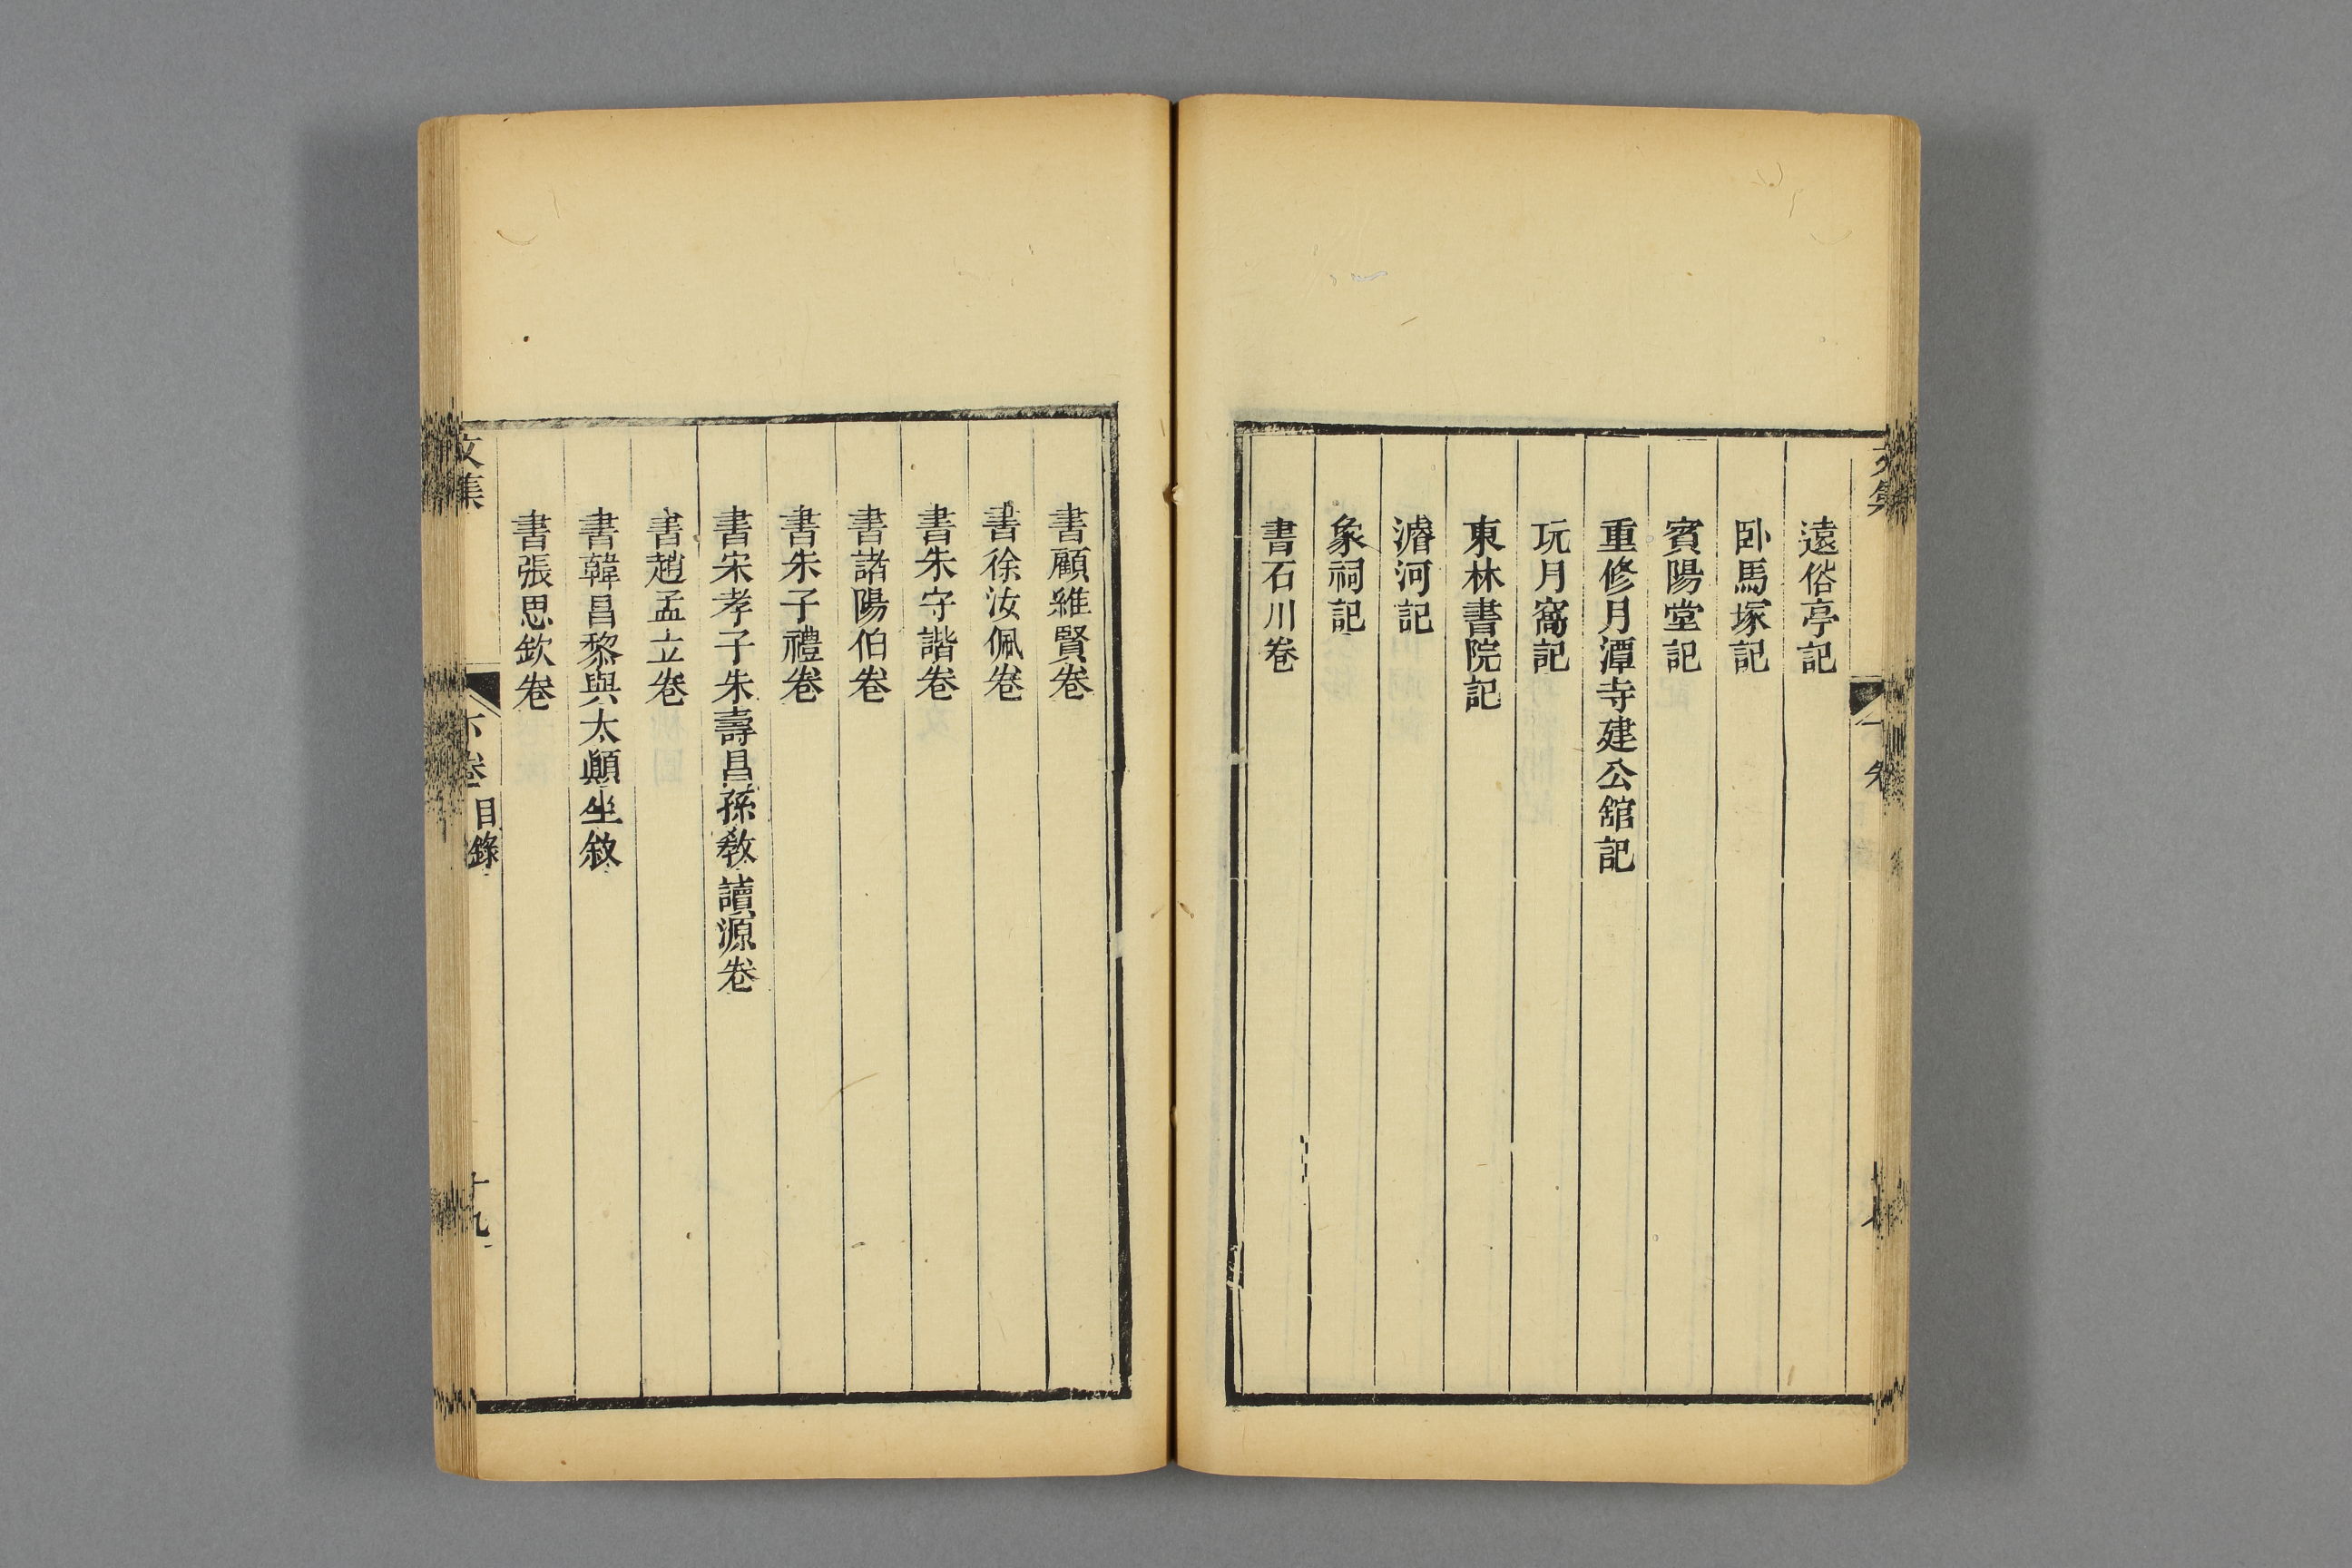 遠俗亭記
卧馬塚記
賓陽堂記
重修月潭寺建公舘記
玩月窩記
東林書院記
濬河記
象祠記
書石川卷
書顧維賢卷
書徐汝佩卷
書朱守諧卷
書諸陽伯卷
書朱子禮卷
書宋孝子朱壽昌孫教讀源卷
書趙孟立卷
書韓昌黎與太顛坐敘
書張思欽卷
文集
下卷
目錄
十九